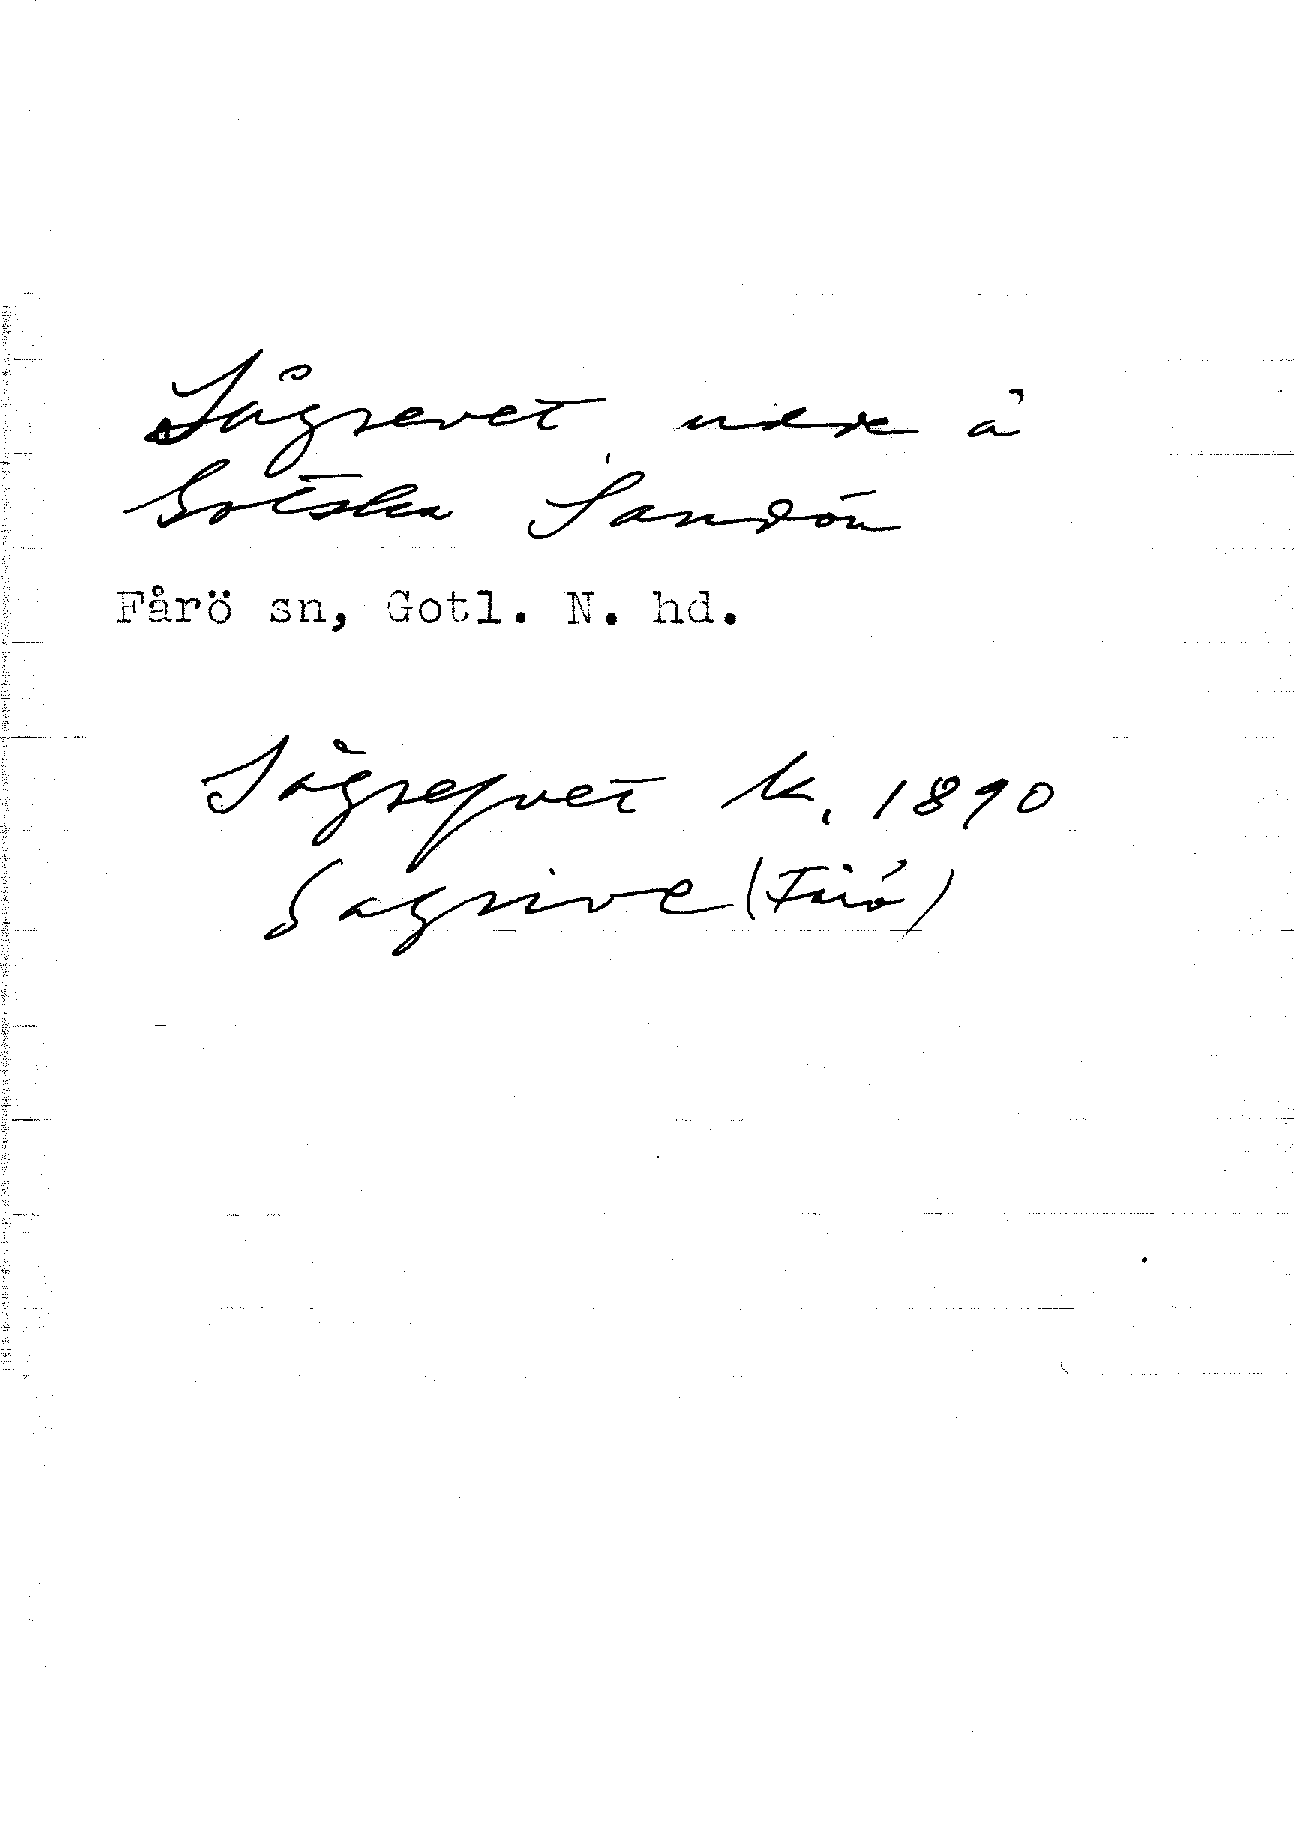 Sågrevet udde å
Gotska Sandön
Fårö sn, Gotl. N. hd.
Sågrefvet k. 1890
Sagrive (Fårö)